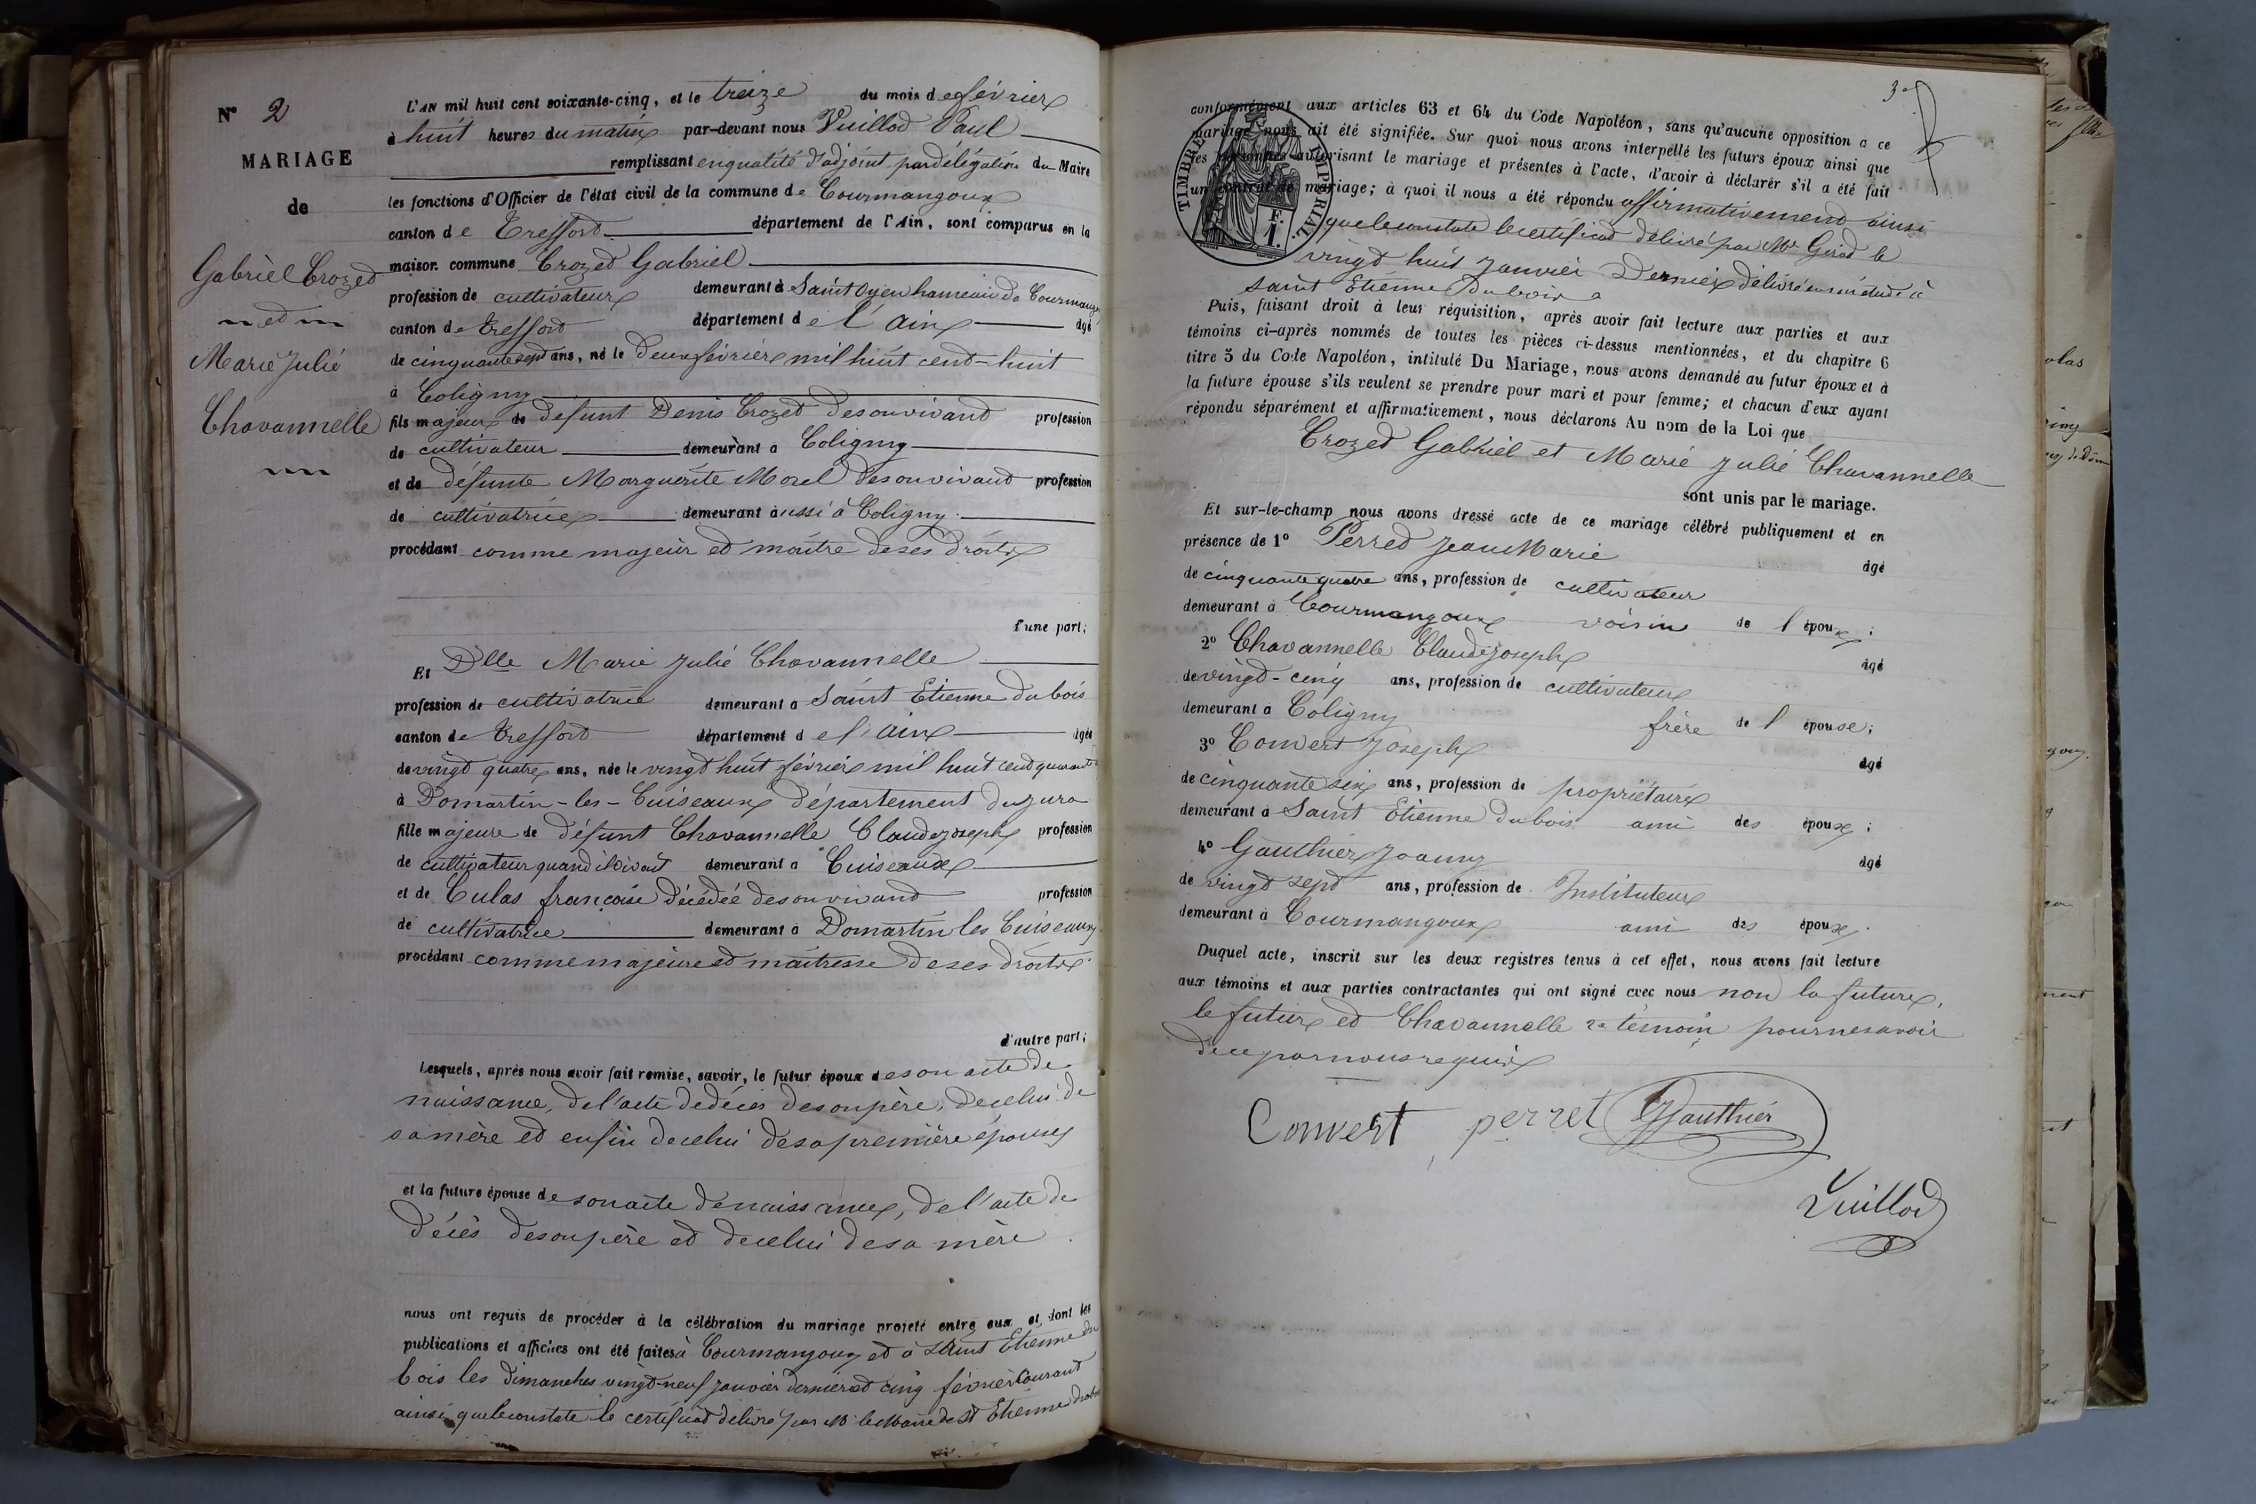 N° 2
MARIAGE
de
Gabrièl Crozet
et
Marie Julie
Chavannelle
L'AN mil huit cent soixante-cinq, et le treize du mois de février
à huit heures du matin par-devant nous Vuillod Paul
remplissant en qualité d'adjoint par délégation du Maire
les fonctions d'Officier de l'état civil de la commune de Courmangoux
canton de Treffort département de l'Ain, sont comparus en la
maison commune Crozet Gabriel
profession de cultivateur demeurant à Saint Oyen hameau de Courmangoux
canton de Treffort département de l'Ain âgé
de cinquante sept ans, né le deux février mil huit cent-huit
à Coligny
fils majeur de défunt Denis Crozet de son vivant profession
de cultivateur demeurant à Coligny
et de défunte Marguerite Morel de son vivant profession
de cultivatrice demeurant aussi à Coligny
procédant comme majeur et maître de ses droits
d'une part;
Et Dlle Marie Julie Chavannelle
profession de cultivatrice demeurant à Saint Etienne du bois
canton de Treffort département de l'Ain âgée
de vingt quatre ans, née le vingt huit février mil huit cent quarante
à Domartin-les-Cuiseaux département du Jura
fille majeure de défunt Chavannelle Claude joseph profession
de cultivateur quand il vivait demeurant à Cuiseaux
et de Culas françoise décédée de son vivant profession
de cultivatrice demeurant à Domartin les Cuiseaux
procédant comme majeure et maîtresse de ses droits
d'autre part;
Lesquels, après nous avoir fait remise, savoir, le futur époux de son acte de
naissance, de l'acte de décès de son père, de celui de
sa mère et enfin de celui de sa première épouse
et la future épouse de son acte de naissance, de l'acte de
décès de son père et de celui de sa mère
nous ont requis de procéder à la célébration du mariage projeté entre eux et dont les
publications et affiches ont été faites à Courmangoux et à Saint Etienne du
bois les dimanches vingt-neuf janvier dernier et cinq février courant
ainsi que le constate le certificat délivré par Mr le Maire de St Etienne du bois
3
conformément aux articles 63 et 64 du Code Napoléon, sans qu'aucune opposition a ce
mariage nous ait été signifiée. Sur quoi nous avons interpellé les futurs époux ainsi que
les personnes autorisant le mariage et présentes à l'acte, d'avoir à déclarer s'il a été fait
un contrat de mariage; à quoi il nous a été répondu affirmativement ainsi
que le constate le certificat délivré par Mr Girod le
vingt huit janvier dernier délivré en son étude à
saint Etienne du bois
TIMBRE IMPÉRIAL
F.
1.
Puis, faisant droit à leur réquisition, après avoir fait lecture aux parties et aux
témoins ci-après nommés de toutes les pièces ci-dessus mentionnées, et du chapitre 6
titre 5 du Code Napoléon, intitulé Du Mariage, nous avons demandé au futur époux et à
la future épouse s'ils veulent se prendre pour mari et pour femme; et chacun d'eux ayant
répondu séparément et affirmativement, nous déclarons Au nom de la Loi que
Crozet Gabriel et Marie Julie Chavannelle
sont unis par le mariage.
Et sur-le-champ nous avons dressé acte de ce mariage célébré publiquement et en
présence de 1° Perret Jean Marie âgé
de cinquante quatre ans, profession de cultivateur
demeurant à Courmangoux voisin de l'époux;
2° Chavannelle Claude Joseph âgé
de vingt-cinq ans, profession de cultivateur
demeurant à Coligny frère de l'épouse;
3° Convert Joseph âgé
de cinquante six ans, profession de propriétaire
demeurant à Saint Etienne du bois ami des époux;
4° Gauthier Joanny âgé
de vingt sept ans, profession de Instituteur
demeurant à Courmangoux ami des époux.
Duquel acte, inscrit sur les deux registres tenus à cet effet, nous avons fait lecture
aux témoins et aux parties contractantes qui ont signé avec nous non la future,
le futur et Chavannelle 2e témoin pour ne savoir
de ce par nous requis
Convert perret Gauthier
Vuillod